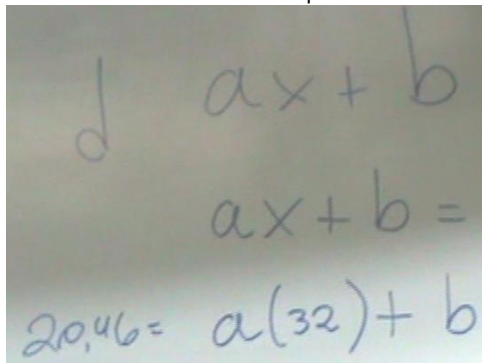 d ax + b
ax + b =
20,46 = a(32) + b